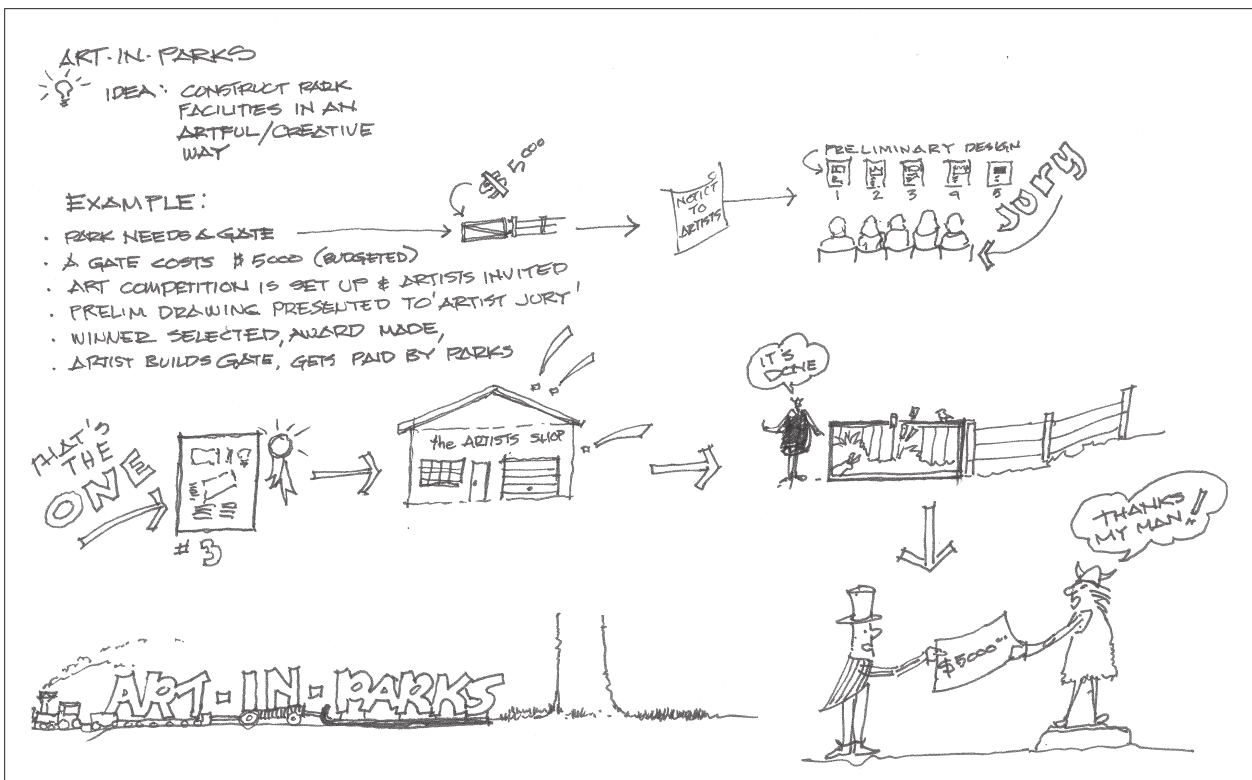 ART-IN-PARKS
IDEA: CONSTRUCT PARK
FACILITIES IN AN
ARTFUL/CREATIVE
WAY
EXAMPLE:
• PARK NEEDS A GATE
• A GATE COSTS $5000 (BUDGETED)
• ART COMPETITION IS SET UP & ARTISTS INVITED
• PRELIM DRAWING PRESENTED TO 'ARTIST JURY'
• WINNER SELECTED, AWARD MADE,
• ARTIST BUILDS GATE, GETS PAID BY PARKS
$5000
NOTICE
TO
ARTISTS
PRELIMINARY DESIGN
1 2 3 4 5
Jury
THAT'S
THE
ONE
#3
the ARTISTS SHOP
IT'S
DONE
THANKS
MY MAN!
$5000
ART-IN-PARKS